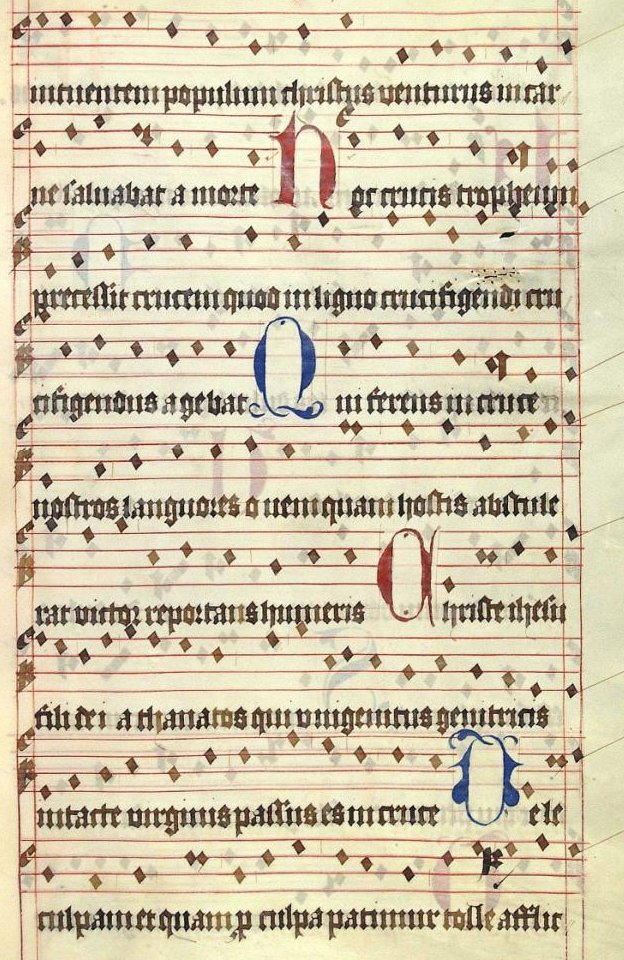 intuentem populum christus venturus in car
ne saluabat a morte H oc crucis tropheum
precessit crucem quod in ligno crucifigendi cru
cifigendus agebat Q ui ferens in cruce
nostros languores o uem quam hostis abstule
rat victor reportans humeris C hriste ihesu
fili dei athanatos qui vnigenitus genitricis
intacte virginis passus es in cruce D ele
culpam et quam p culpa patimur tolle afflic